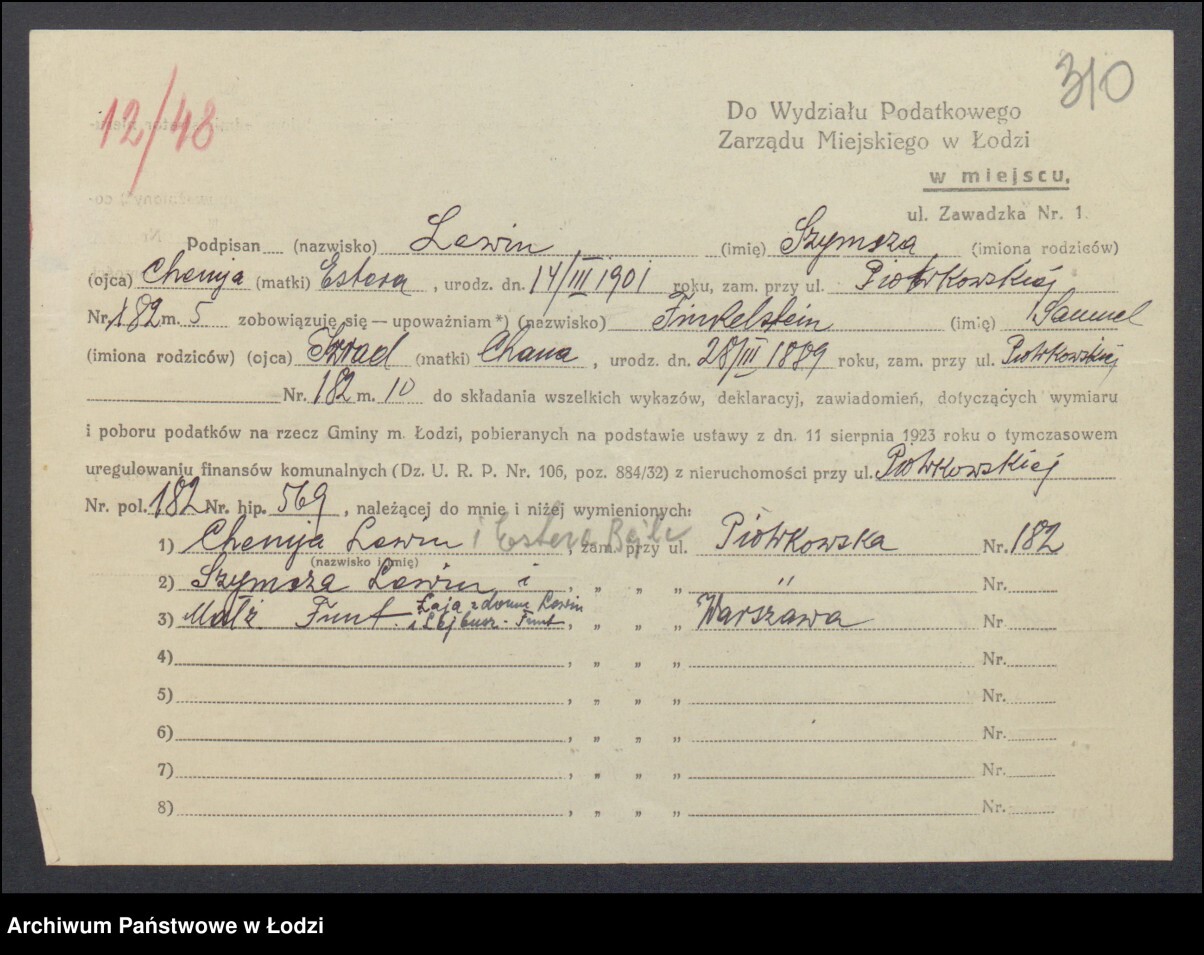 12/48
310
Do Wydziału Podatkowego
Zarządu Miejskiego w Łodzi
w miejscu.
ul. Zawadzka Nr. 1.
Podpisan (nazwisko) Lewin (imię) Szymsza (imiona rodziców)
(ojca) Chemja (matki) Estera, urodz. dn. 14/III 1901 roku, zam. przy ul. Piotrkowskiej
Nr. 182 m. 5 zobowiązuję się — upoważniam *) (nazwisko) Finkelstein (imię) Samuel
(imiona rodziców) (ojca) (matki) Chana, urodz. dn. 28/III 1889 roku, zam. przy ul. Piotrkowskiej
Nr. 182 m. 10 do składania wszelkich wykazów, deklaracyj, zawiadomień, dotyczących wymiaru
i poboru podatków na rzecz Gminy m. Łodzi, pobieranych na podstawie ustawy z dn. 11 sierpnia 1923 roku o tymczasowem
uregulowaniu finansów komunalnych (Dz. U. R. P. Nr. 106, poz. 884/32) z nieruchomości przy ul. Piotrkowskiej
Nr. pol. 182 Nr. hip. 569, należącej do mnie i niżej wymienionych:
1) Chemja Lewin i Estera Bajla, zam. przy ul. Piotrkowska Nr. 182
(nazwisko i imię)
2) Szymsza Lewin i, „ „ „ " Nr.
3) Małż. Funt. Łaja z domu Lewin
i Lejbusz - Funt, „ „ „ Warszawa Nr.
4) , „ „ „ Nr.
5) , „ „ „ Nr.
6) , „ „ „ Nr.
7) , „ „ „ Nr.
8) , „ „ „ Nr.
Archiwum Państwowe w Łodzi